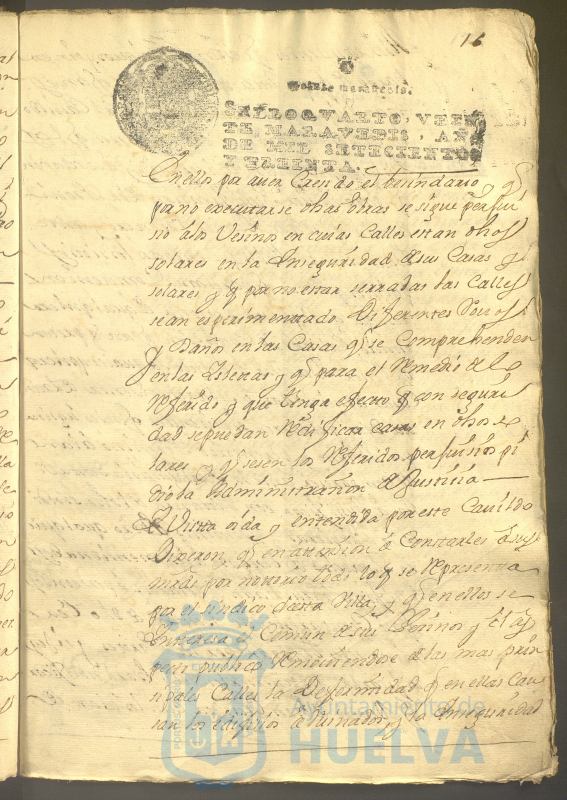 16
Veinte maravedis.
SELLO QVARTO, VEIN
TE MARAVEDIS, AÑO
DE MIL SETECIENTOS
Y TREINTA.
en ellos por aver Crecido el besindario, y q
por no executarse dhas obras se sigue perjui
sio a los Vesinos en cuias Calles estan dhos
solares en la Inseguridad de sus Casas y
solares y q por no estar serradas las Calles
se an esperimentado Diferentes Rovos
y Daños en las Casas q se Comprehenden
en las Yslettas y q para el Remedio de lo
Referido y que tenga efecto y con seguri
dad se puedan Redificar casas en dhos so
lares y q sesen los Referidos perjuisios pi
dio la Administrasion de Justicia
Y Vista oida y entendida por este Cavildo
Dixeron q en attension a Constarles a sus
mrds por nottorio todo lo q se Representa
por el sindico desta Villa, y q en ellos se
Interesa el Comun de sus Vesinos y
publico Removiendose de las mas prin
sipales Calles la Deformidad q en ellas Cau
san los edifisios arruinados, y la Inseguridad
Ayuntamiento de
HUELVA